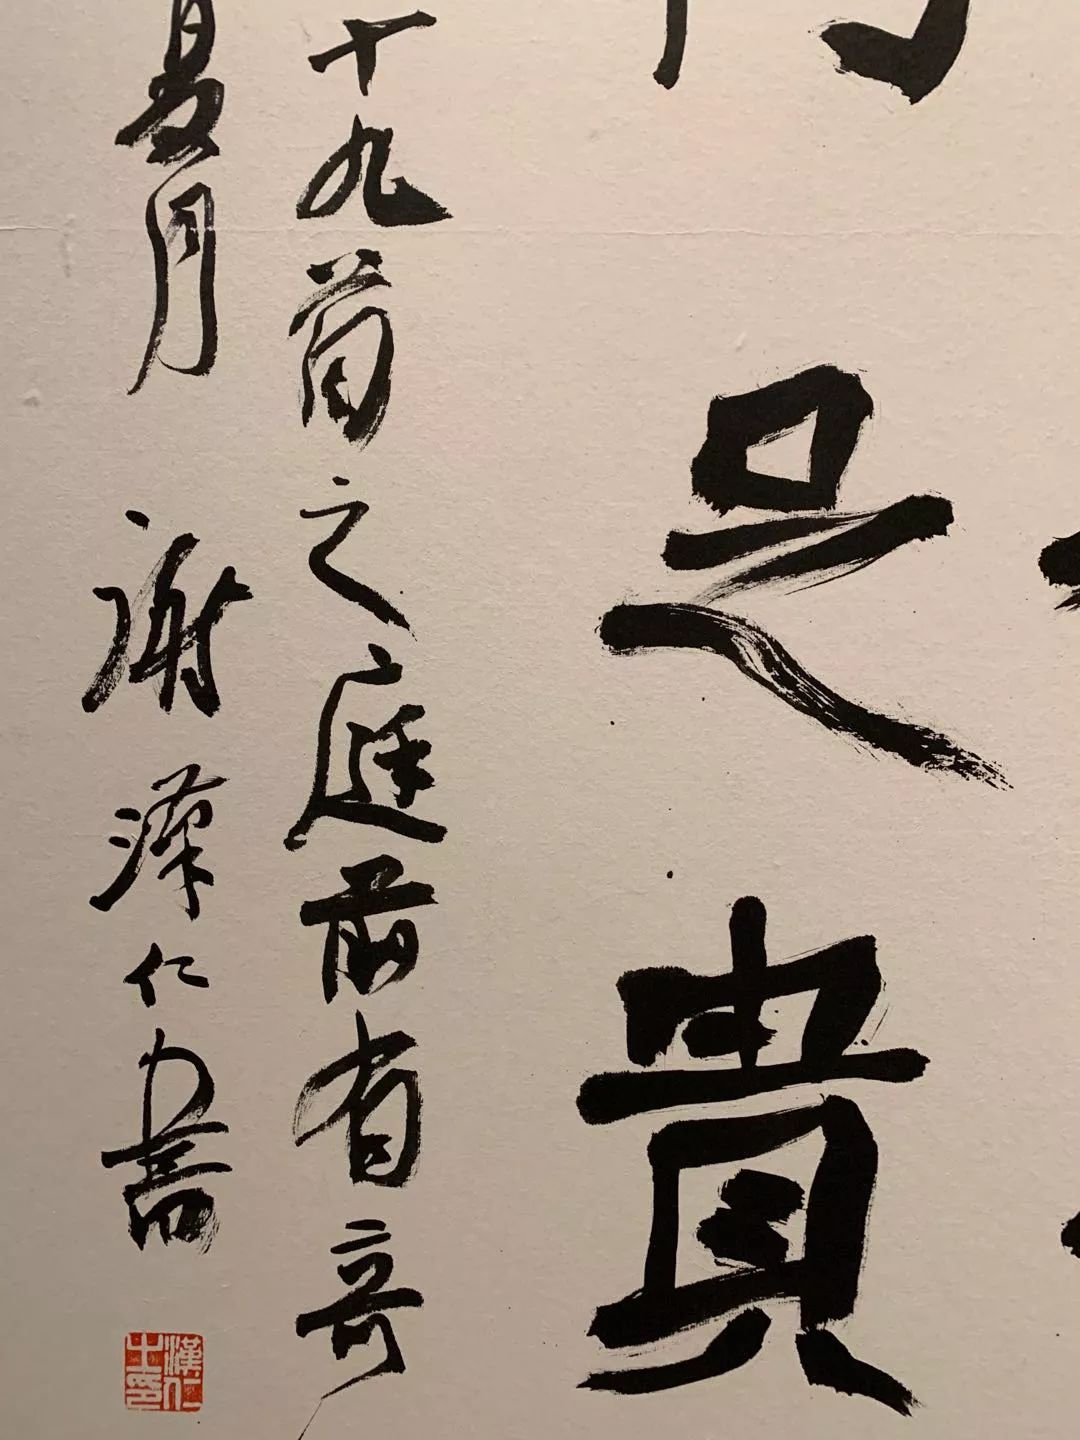 足貴
十九首之庭前有奇
夏月 謝漢仁書
漢仁之印